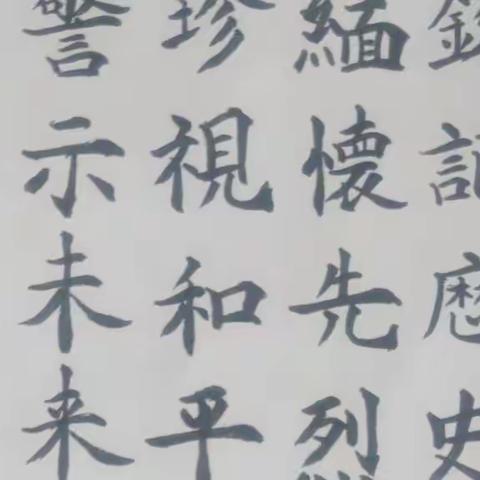 史
緬懷先烈
珍視和平
警示未来